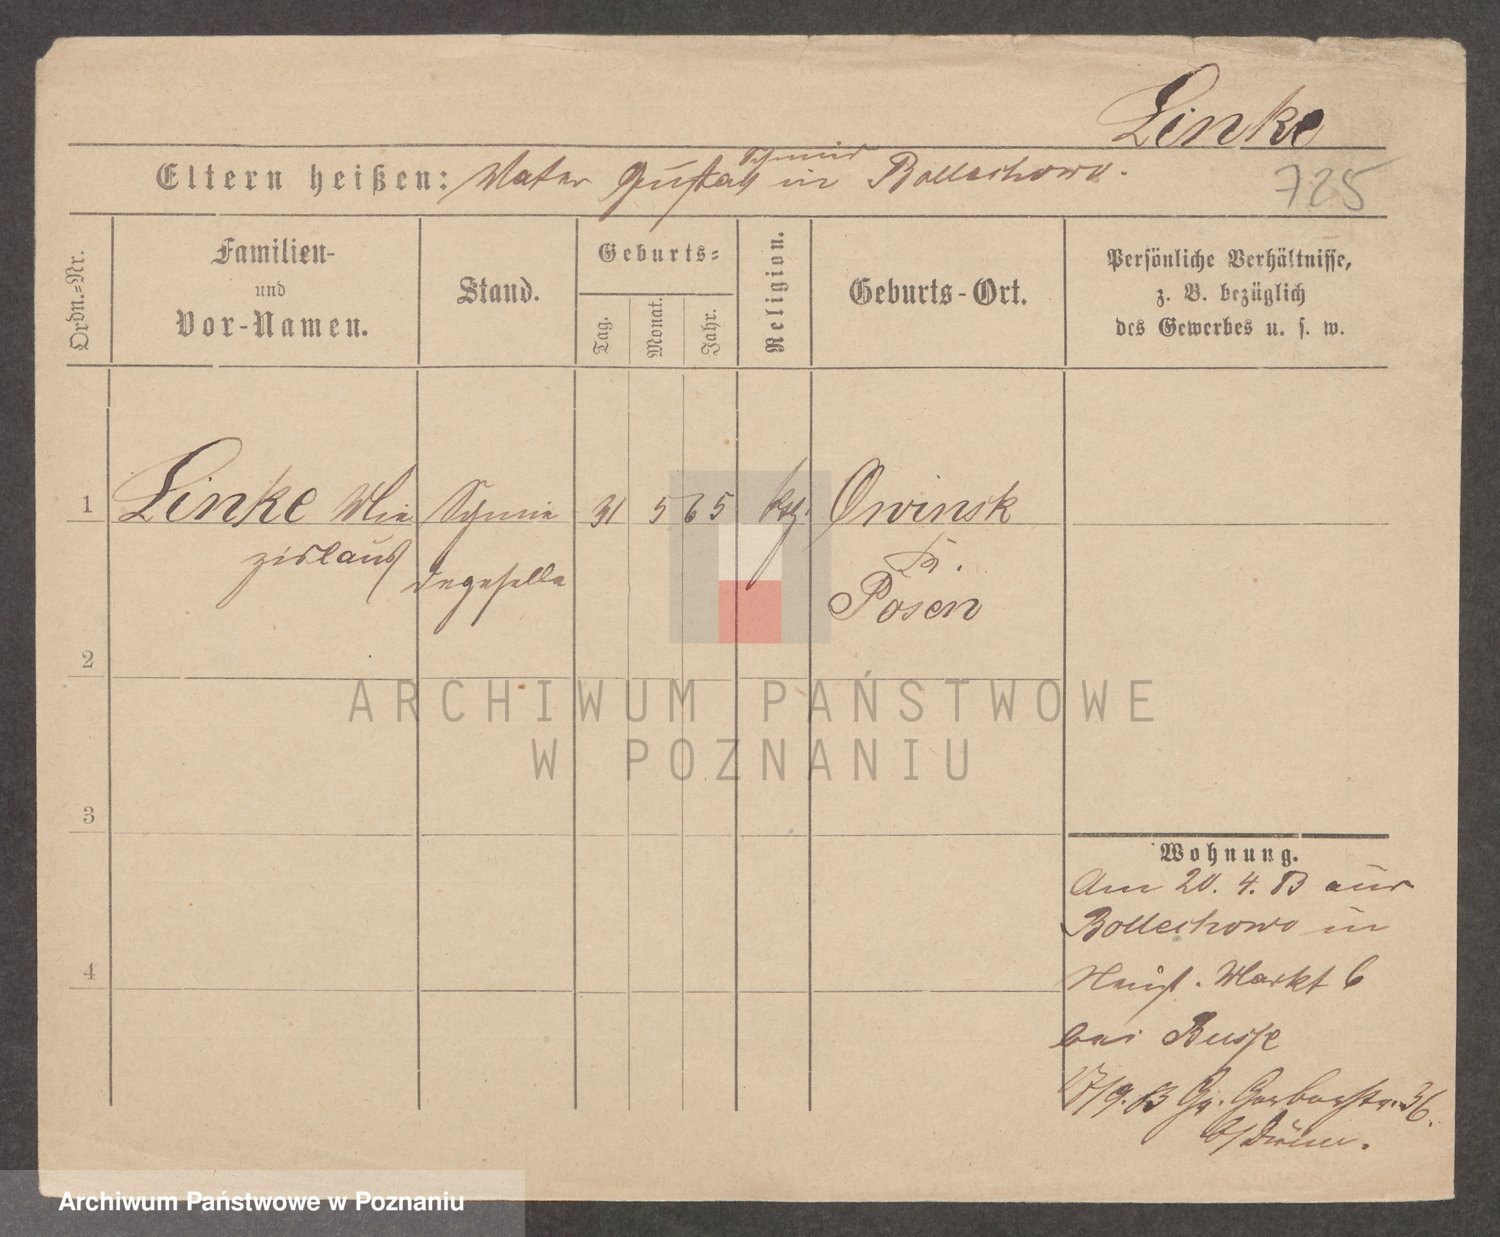 Linke
Schmied
Eltern heißen: Vater Gustav in Bollechowo.
725
Ordn.=Nr.
Familien-
und
Vor-Namen.
Stand.
Geburts=
Tag.
Monat.
Jahr.
Religion.
Geburts-Ort.
Persönliche Verhältnisse,
z. B. bezüglich
des Gewerbes u. s. w.
1 Linke Mie Schmie 31 5 65 ktg. Owinsk
zislaus degeselle Kr.
Posen
2
3
4
Wohnung.
Am 20. 4. 83 aus
Bollechowo in
Neust. Markt 6
bei Busse
17/9. 83 Gr. Gerberstr. 36.
b/
ARCHIWUM PAŃSTWOWE
W POZNANIU
Archiwum Państwowe w Poznaniu